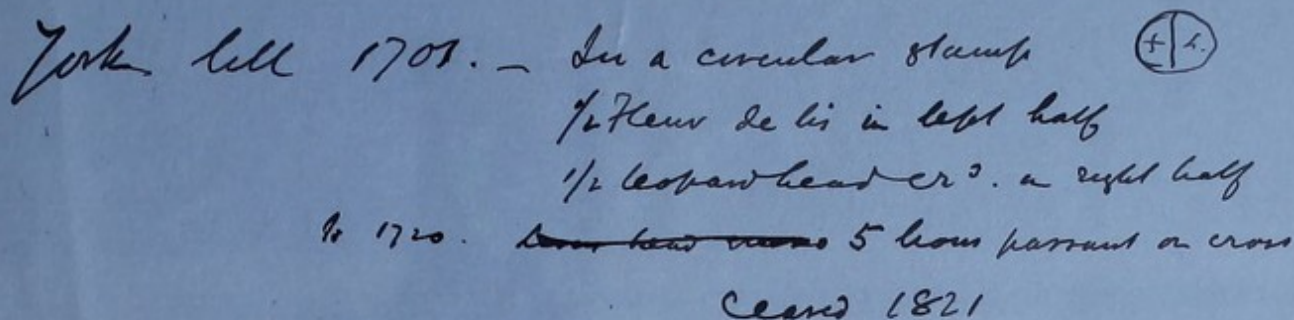 York till 1701. – In a circular stamp
1/2 Fleur de lis in left half
1/2 leopard head crd. in right half
to 1720. 5 lions passant on cross
Ceased 1821